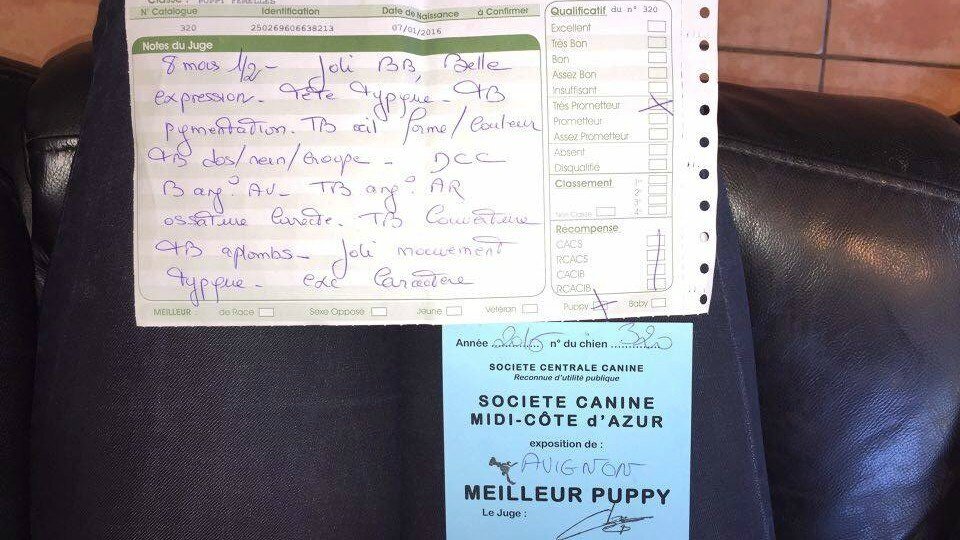 Classe : PUPPY FEMELLES
N° Catalogue Identification Date de Naissance à Confirmer
320 250269606638213 07/01/2016
Notes du Juge
8 mois 1/2 - Joli BB, Belle
expression - Tête typyque - TB
pygmentation. TB œil forme/couleur
TB dos/rein/croupe - DCC
B ang° AV - TB ang° AR
ossature correcte. TB
TB aplombs - Joli mouvement
typyque - exc caractère
MEILLEUR : de Race Sexe Opposé Jeune Vétéran
Qualificatif du n° 320
Excellent
Très Bon
Bon
Assez Bon
Insuffisant
Très Prometteur
Prometteur
Assez Prometteur
Absent
Disqualifié
Classement 1°
2°
3°
Non Classé 4°
Récompense
CACS
RCACS
CACIB
RCACIB
Puppy Baby
Année 2016 n° du chien 320
SOCIETE CENTRALE CANINE
Reconnue d'utilité publique
SOCIETE CANINE
MIDI-CÔTE d'AZUR
exposition de :
AVIGNON
MEILLEUR PUPPY
Le Juge :